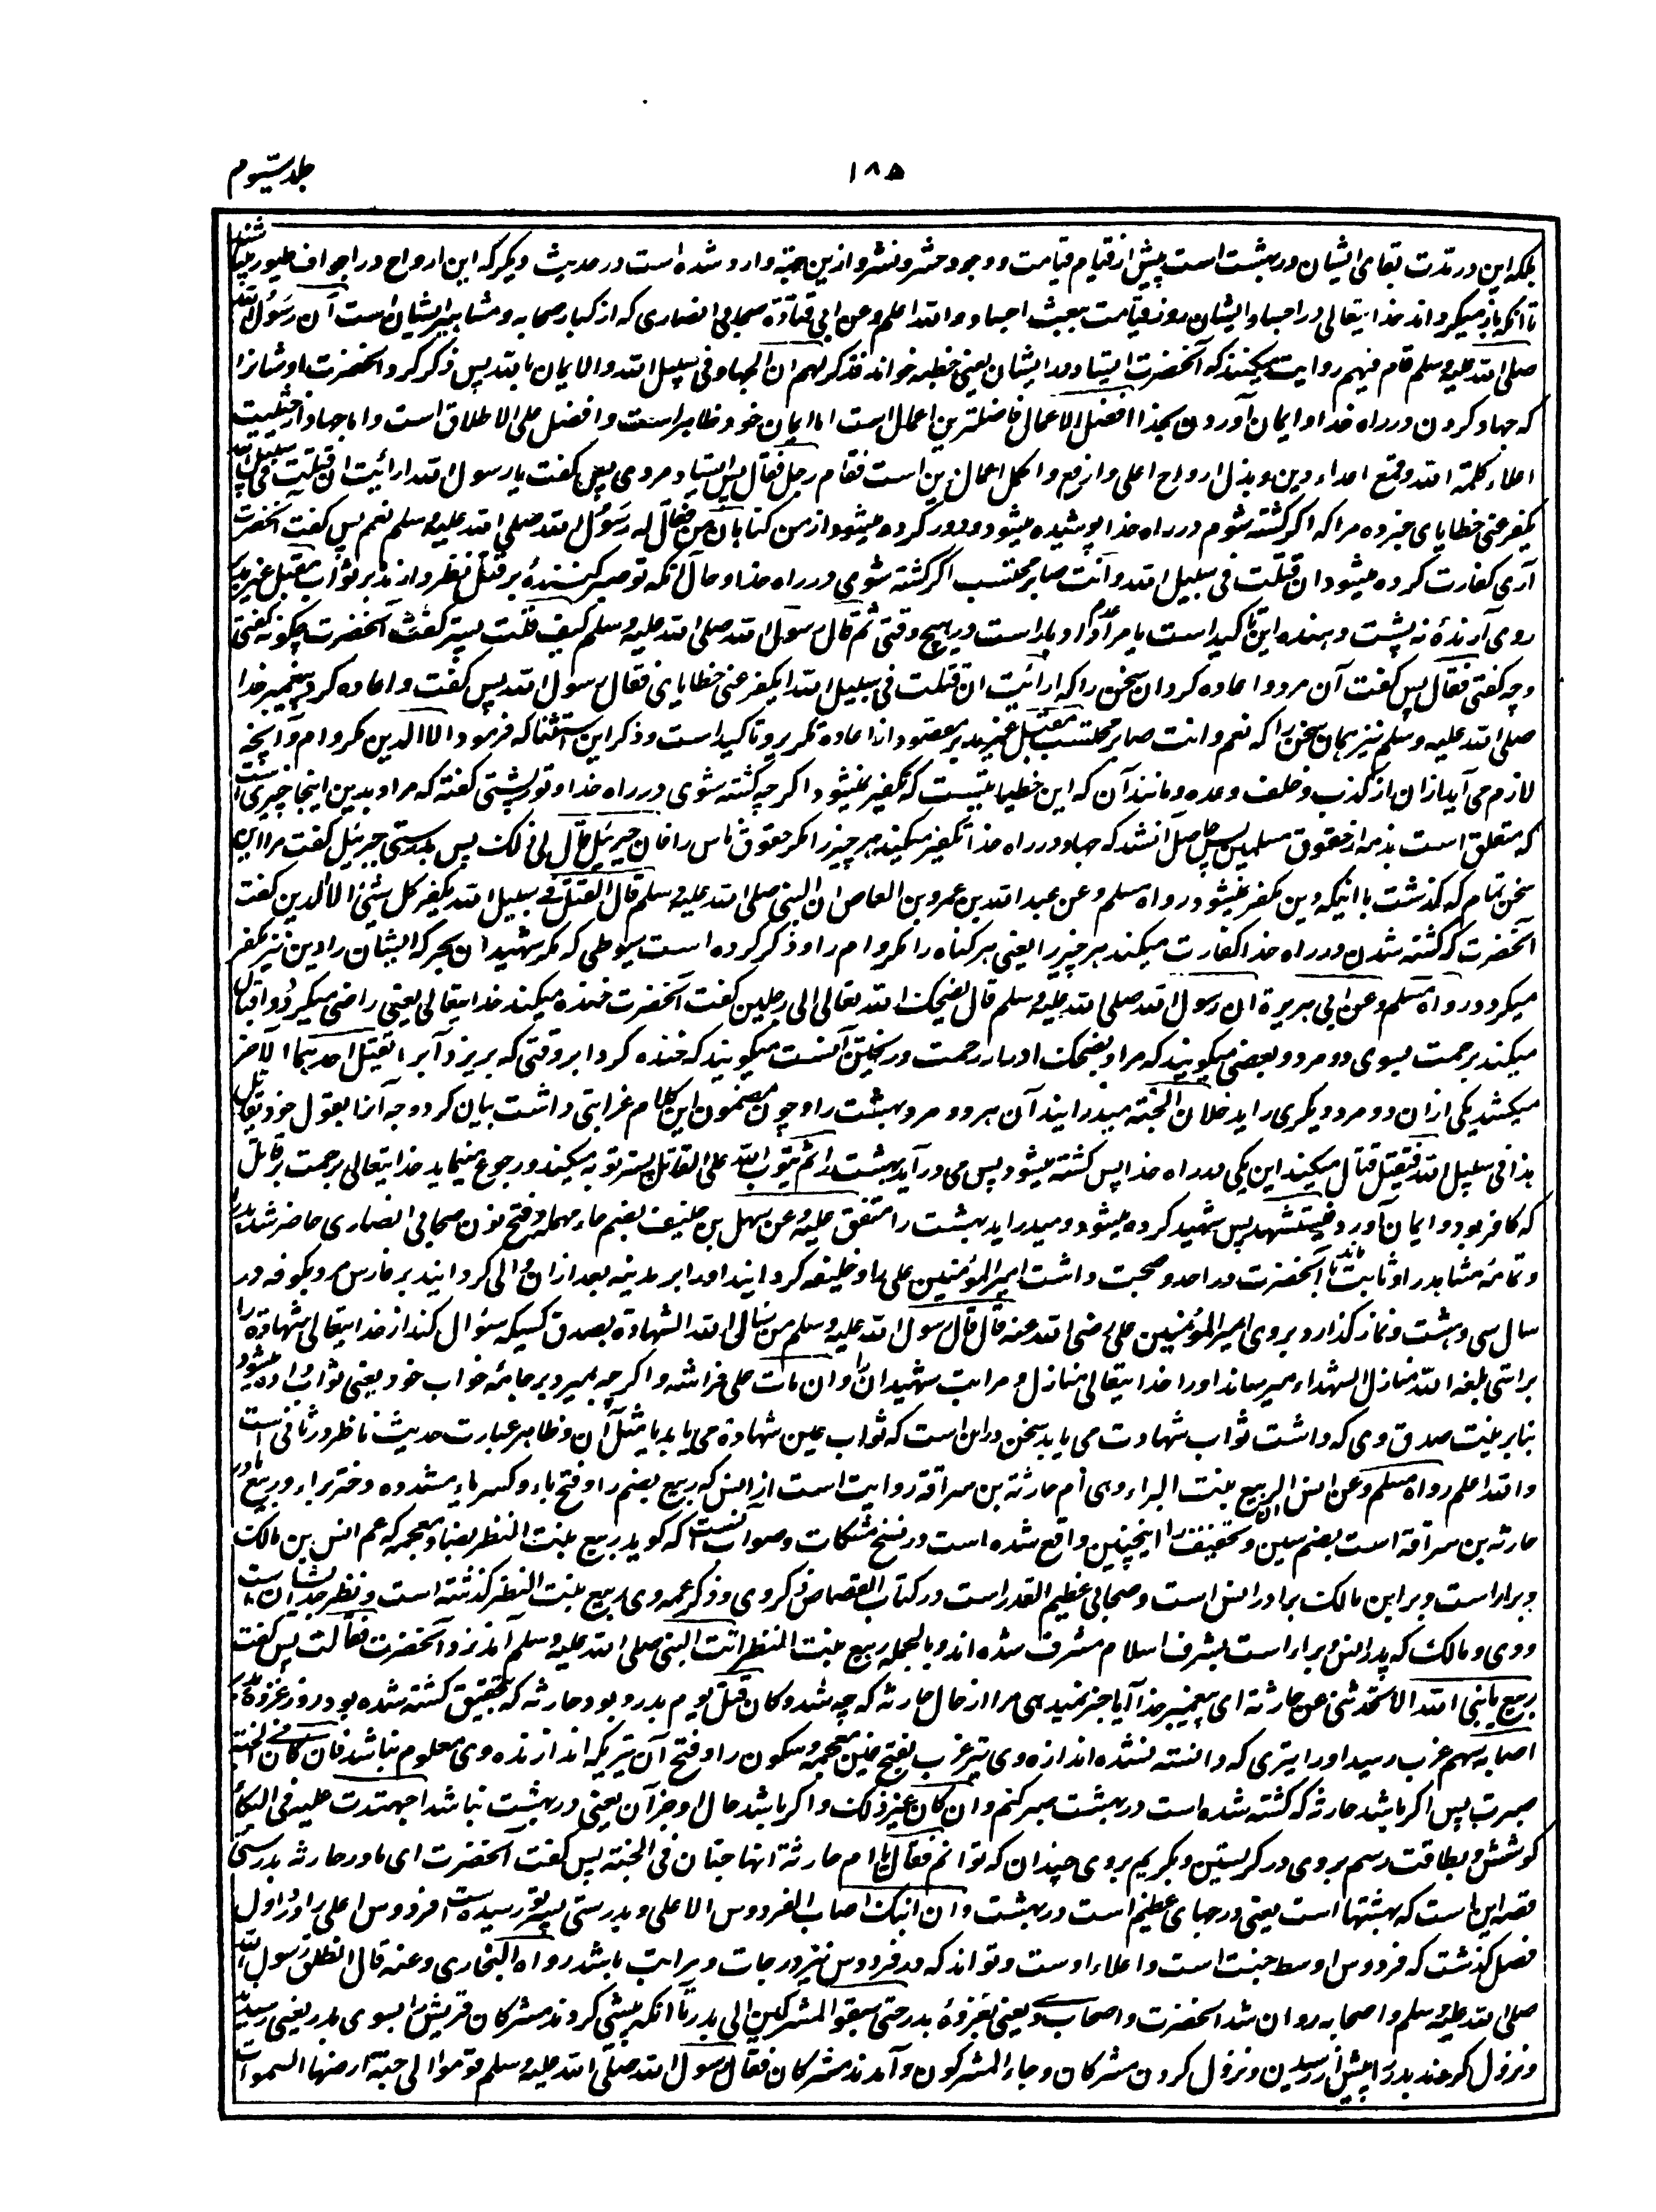 جلد سیوم
۱۸۵
بلکه این در مدت بقای ایشان در بهشت است پیش از قیام قیامت و وجود حشر و نشر و ازین جهة وارد شده است در حدیث دیگر که این ارواح در اجواف طیور میباشند
تا آنکه باز میگرداند خدایتعالی در اجساد ایشان روز قیامت ببعث اجساد والله اعلم وعن ابی قتادة صحابی انصاری که از کبار صحابه و مشاهیر ایشان است آن رسول الله
صلی الله علیه وسلم قام فیهم روایت میکنند که آنحضرت ایستاد در ایشان یعنی خطبه خواند فذکر لهم ان الجهاد فی سبیل الله والایمان بالله پس ذکر کرد آنحضرت مر ایشانرا
که جهاد کردن در راه خدا و ایمان آوردن بخدا افضل الاعمال فاضلترین اعمال است اما ایمان خود ظاهر است و افضل علی الاطلاق است و اما جهاد از حیثیت
اعلاء کلمة الله وقمع اعداء دین و بذل ارواح اعلی و ارفع و اکمل اعمال دین است فقام رجل فقال پس ایستاد مردی پس گفت یا رسول الله ارأیت ان قتلت فی سبیل الله
یکفر عنی خطایای خبر ده مرا که اگر کشته شوم در راه خدا پوشیده میشود و دور کرده میشود از من گناهان من فقال له رسول الله صلی الله علیه وسلم نعم پس گفت آنحضرت
آری کفارت کرده میشود ان قتلت فی سبیل الله وانت صابر محتسب اگر کشته شوی در راه خدا و حال آنکه تو صبر کنندۀ بر قتل نظر دارندۀ بر ثواب مقبل غیر مدبر
روی آرندۀ نه پشت دهنده این تاکید است یا مراد عدم ادبار است در هیچ وقتی ثم قال رسول الله صلی الله علیه وسلم کیف قلت پستر گفت آنحضرت چگونه گفتی
و چه گفتی فقال پس گفت آن مرد و اعاده کرد آن سخن را که ارأیت ان قتلت فی سبیل الله ایکفر عنی خطایای فقال رسول الله پس گفت و اعاده کرد پیغمبر خدا
صلی الله علیه وسلم نیز همان سخن را که نعم وانت صابر محتسب مقبل غیر مدبر مقصود از اعاده تکریر و تاکید است و ذکر این استثنا که فرمود الا الدین مگر وام و آنچه
لازم می آید ازان از کذب و خلف وعده و مانند آن که این خطیأتیست که تکفیر نمیشود اگر چه کشته شوی در راه خدا و تورپشتی گفته که مراد بدین اینجا چیزیست
که متعلق است بذمه از حقوق مسلمین پس حاصل آن شد که جهاد در راه خدا تکفیر میکند هر چیز را مگر حقوق ناس را فان جبرئیل قال لی ذلک پس بدرستی جبرئیل گفت مرا این
سخن تمام که گذشت با اینکه دین مکفر نمیشود رواه مسلم وعن عبد الله بن عمرو بن العاص ان النبی صلی الله علیه وسلم قال القتل فی سبیل الله یکفر کل شئ الا الدین گفت
آنحضرت که کشته شدن در راه خدا کفارت میکند هر چیز را یعنی هر گناه را مگر وام را و ذکر کرده است سیوطی که مگر شهیدان بحر که ایشان را دین نیز مکفر
میگردد رواه مسلم وعن ابی هریرة ان رسول الله صلی الله علیه وسلم قال یضحک الله تعالی الی رجلین گفت آنحضرت خنده میکند خدایتعالی یعنی راضی میگردد و اقبال
میکند برحمت بسوی دو مرد و بعضی میگویند که مراد بضحک ادرار رحمت و ریختن آنست میگویند که خنده کرد ابر وقتی که بریزد آبر ا یقتل احدهما الآخر
میکشد یکی ازان دو مرد دیگری را یدخلان الجنة میدرایند آن هر دو مرد بهشت را و چون مضمون این کلام غرابتی داشت بیان کرد وجه آنرا بقول خود یقاتل
هذا فی سبیل الله فیقتل قتال میکند این یکی در راه خدا پس کشته میشود پس می درآید بهشت را ثم یتوب الله علی القاتل پستر توبه میکند و رجوع مینماید خدایتعالی برحمت بر قاتل
که کافر بود و ایمان آورد فیستشهد پس شهید کرده میشود و میدراید بهشت را متفق علیه وعن سهل بن حنیف بضم حاء مهمله و فتح نون صحابی انصاری حاضر شد بدر را
و تمامۀ مشاهد را و ثابت ماند با آنحضرت در احد و صحبت داشت امیر المؤمنین علی را و خلیفه گردانید او را بر مدینه بعد ازان والی گردانید بر فارس مرد بکوفه در
سال سی و هشت و نماز گذارد بر وی امیر المؤمنین علی رضی الله عنه قال قال رسول الله علیه وسلم من سأل الله الشهادة بصدق کسیکه سئوال کند از خدایتعالی شهادة را
براستی بلغه الله منازل الشهداء میرساند او را خدایتعالی بمنازل و مراتب شهیدان وان مات علی فراشه و اگر چه بمیرد بر جامۀ خواب خود یعنی ثواب داده میشود
بنابر نیت صدق وی که داشت ثواب شهادت می یابد سخن در این است که ثواب عین شهادة می یابد یا مثل آن و ظاهر عبارت حدیث ناظر در ثانی است
والله اعلم رواه مسلم وعن انس ان الربیع بنت البراء وهی ام حارثة بن سراقة روایت است از انس که ربیع بضم را و فتح باء و کسر یاء مشدده دختر براء و ربیع مادر
حارثه بن سراقة است بضم سین و تخفیف را اینچنین واقع شده است در نسخ مشکات و صواب آنست که گوید ربیع بنت النضر بضاد معجمه که عم انس بن مالک
و براء است و براء بن مالک برادر انس است و صحابی عظیم القدر است در کتاب القصاص ذکر وی و ذکر عمه وی ربیع بنت النضر گذشته است و نظر جد ایشان است
و وی و مالک که پدر انس و براء است بشرف اسلام مشرف شده اند و بالجمله ربیع بنت النضر اتت النبی صلی الله علیه وسلم آمد نزد آنحضرت فقالت پس گفت
ربیع یا نبی الله الا تحدثنی عن حارثة ای پیغمبر خدا آیا خبر نمیدهی مرا از حال حارثه که چه شد وکان قتل یوم بدر و بود حارثه که بتحقیق کشته شده بود روز غزوۀ بدر
اصابه سهم غرب رسید او را تیری که دانسته نشده اندازه وی تیر غرب بفتح غین معجمه و سکون را و فتح آن تیریکه اندازنده وی معلوم نباشد فان کان فی الجنة
صبرت پس اگر باشد حارثه که کشته شده است در بهشت صبر کنم وان کان غیر ذلک و اگر باشد حال او جز آن یعنی در بهشت نباشد اجتهدت علیه فی البکاء
کوشش و بطاقت رسم بر وی در گریستن و بگریم بر وی چندان که توانم فقال یا ام حارثة انها جنان فی الجنة پس گفت آنحضرت ای مادر حارثه بدرستی
قصه این است که بهشتها است یعنی درجهای عظیم است در بهشت وان ابنک اصاب الفردوس الاعلی و بدرستی پسر تو رسیده است فردوس اعلی را و در اول
فصل گذشت که فردوس اوسط جنت است و اعلاء اوست و تواند که در فردوس نیز درجات و مراتب باشد رواه البخاری وعنه قال انطلق رسول الله
صلی الله علیه وسلم واصحابه روان شد آنحضرت و اصحاب وی یعنی بغزوۀ بدر حتی سبقوا المشرکین الی بدر تا آنکه پیشی کردند مشرکان قریش را بسوی بدر یعنی رسیدند
و نزول کردند ببدر پیش از رسیدن و نزول کردن مشرکان وجاء المشرکون و آمدند مشرکان فقال رسول الله صلی الله علیه وسلم قوموا الی جنة ارضها السموات